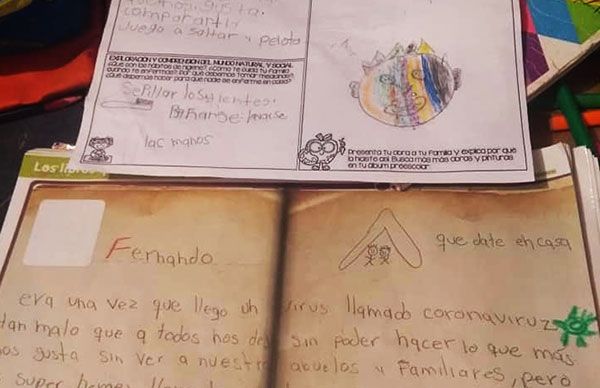 gusta
comparorti
Juego a saltar y pelota
EXPLORACIÓN Y COMPRENSIÓN DEL MUNDO NATURAL Y SOCIAL
¿Que son los hábitos de higiene? ¿Cómo te cuida tu familia
cuando te enfermas? ¿Por qué debemos tomar medicinas?
¿Qué debemos hacer para que nadie se enferme en casa?
SePillar los dientes.
Bañarse lavarse
las manos
Presenta tu obra a tu familia y explica por qué
la hiciste así. Busca más más obras y pinturas
en tu álbum preescolar
Los libros
Fernando
que date en casa
era una vez que llego un virus llamado coronaviruz
tan malo que a todos nos de sin poder hacer lo que más
nos gusta sin ver a nuestr abuelos y Familiares, pero
super heroes